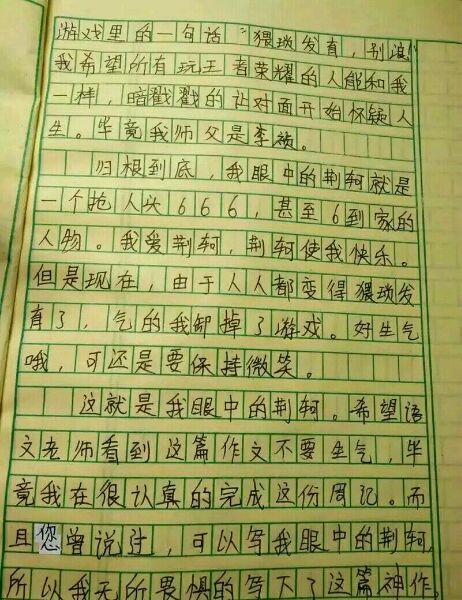 游戏里的一句话“猥琐发育，别浪”
我希望所有玩王者荣耀的人能和我
一样，暗戳戳的让对面开始怀疑人
生。毕竟我师父是李
归根到底，我眼中的荆轲就是
一个抢人头666，甚至6到家的
人物。我爱荆轲，荆轲使我快乐。
但是现在，由于人人都变得猥琐发
育了，气的我卸掉了游戏。好生气
哦，可还是要保持微笑。
这就是我眼中的荆轲。希望语
文老师看到这篇作文不要生气，毕
竟我在很认真的完成这份周记。而
且您曾说过，可以写我眼中的荆轲，
所以我无所畏惧的写下了这篇神作。